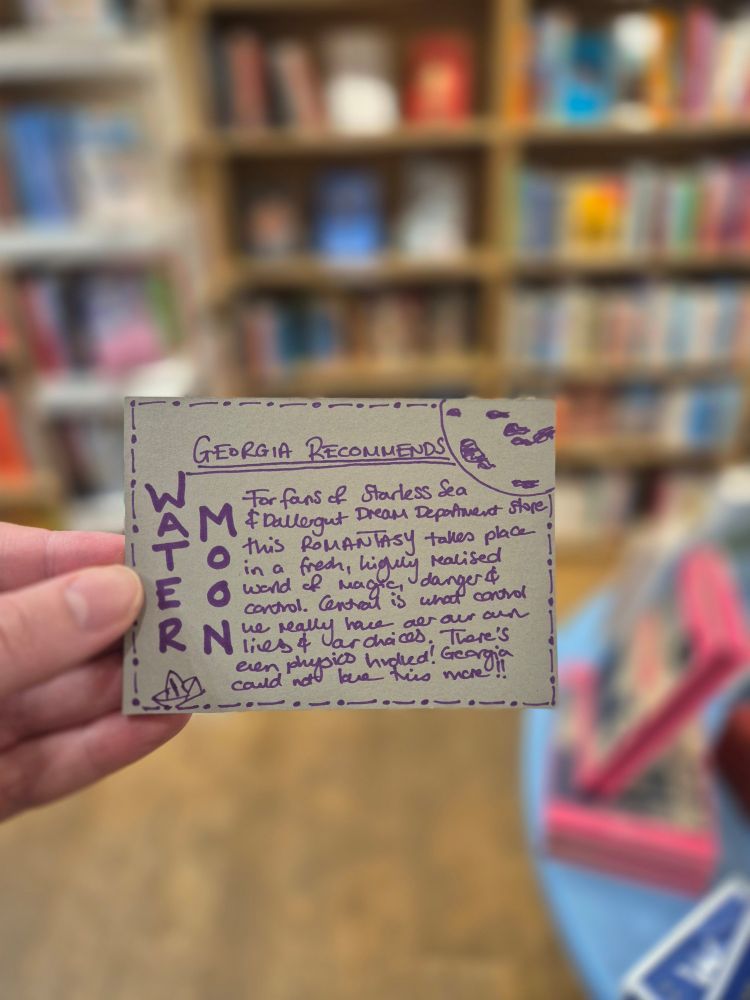 GEORGIA RECOMMENDS
WATER
MOON
For fans of Starless Sea
& Dallergut DREAM Department Store
this ROMANTASY takes place
in a fresh, highly realised
world of magic, danger &
control. Central is what control
we really have over our own
lives & our choices. There's
even physics involved! Georgia
could not love this more!!